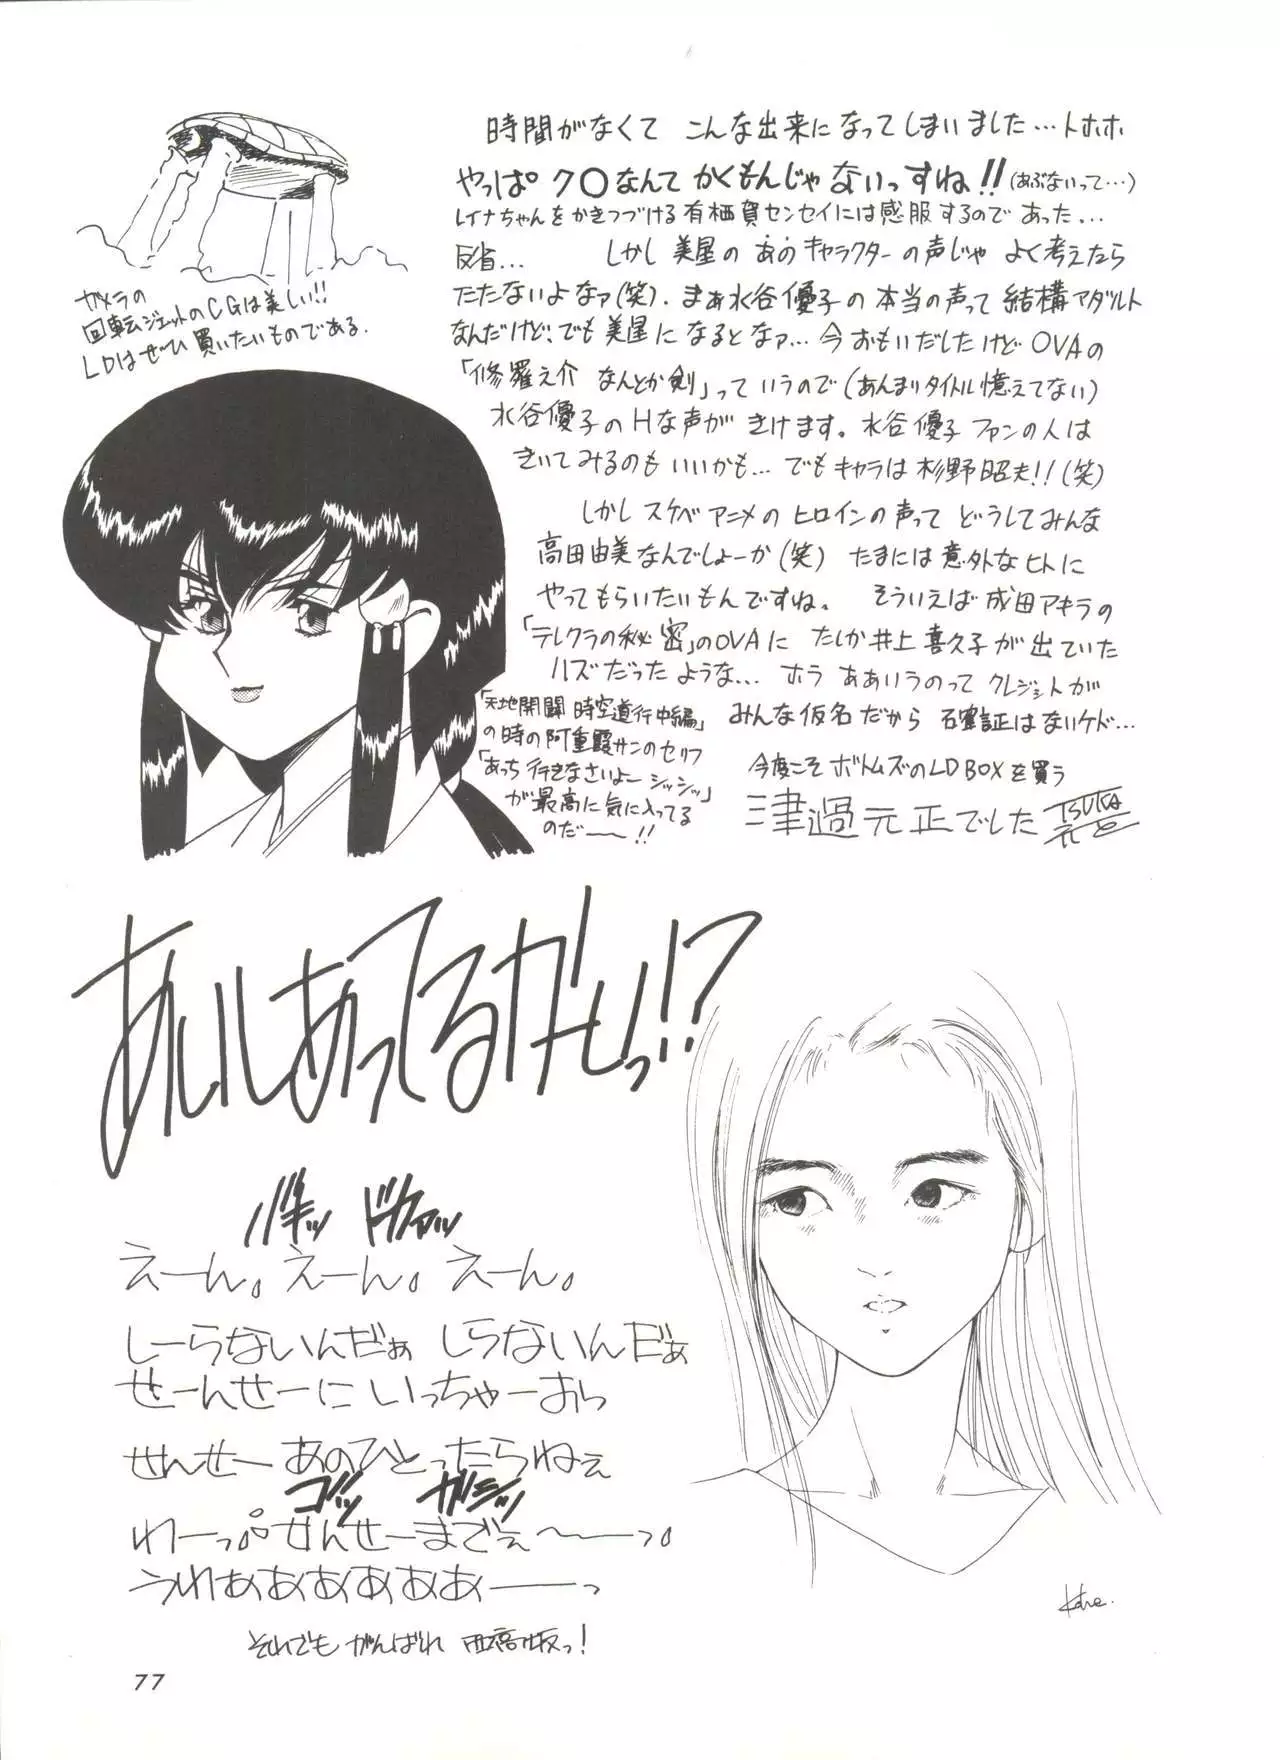 時間がなくて こんな出来になってしまいました…トホホ
やっぱ ク〇なんて かくもんじゃ ないっすね!!(あぶないって…)
レイナちゃんを かきつづける 有栖賀センセイには感服するので あった…
反省… しかし 美星の あの キャラクターの声じゃ よく考えたら
たたないよなァ(笑). まぁ水谷優子の本当の声って 結構アダルト
なんだけど、でも美星に なるとなァ… 今おもいだしたけど OVAの
「修羅之介 なんとか剣」って いうので (あんまりタイトル憶えてない)
水谷優子のHな声が きけます。水谷優子ファンの人は
きいてみるのも いいかも… でもキャラは杉野昭夫!!(笑)
しかし スケベアニメの ヒロインの声って どうしてみんな
高田由美なんでしょーか(笑) たまには意外なヒトに
やってもらいたいもんですね。 そういえば 成田アキラの
「テレクラの秘密」のOVAに たしか井上喜久子が出ていた
ハズだったような… ホラ ああいうのって クレジットが
みんな仮名だから 確証はないケド…
今度こそ ボトムズのLD BOXを買う
津過元正でした
ガメラの
回転ジェットのCGは美しい!!
LDはぜひ 買いたいものである.
「天地開闢 時空道行中編」
の時の阿重霞サンのセリフ
「あっち行きなさいよー シッシッ」
が最高に気に入ってる
のだーー!!
あいしあってるかーいっ!?
バキッ ドカァッ
えーん。えーん。えーん。
しーらないんだぁ しらないんだぁ
せーんせーに いっちゃーおっ
せんせー あのひとったらねぇ
ゴッ ガシッ
わーっ。せんせーまでぇ〜ーーっ。
うわああああああーーっ
それでも がんばれ 西高版っ!
77